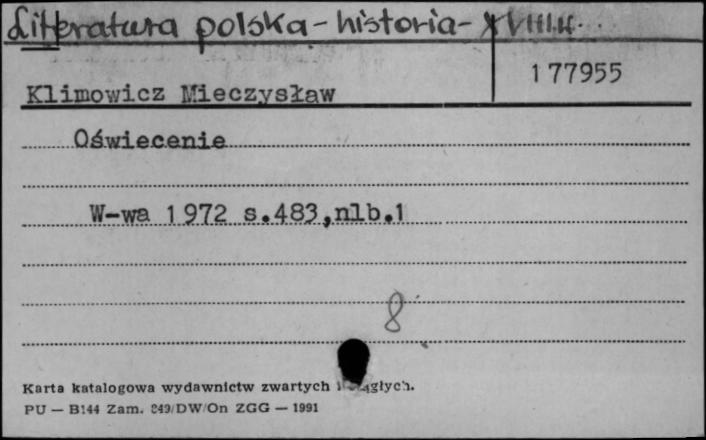 Literatura polska - historia - XVIII w.
177955
Klimowicz Mieczysław
Oświecenie
W-wa 1972 s.483,nlb.1
8
Karta katalogowa wydawnictw zwartych i ciągłych.
PU — B144 Zam. 849/DW/On ZGG — 1991